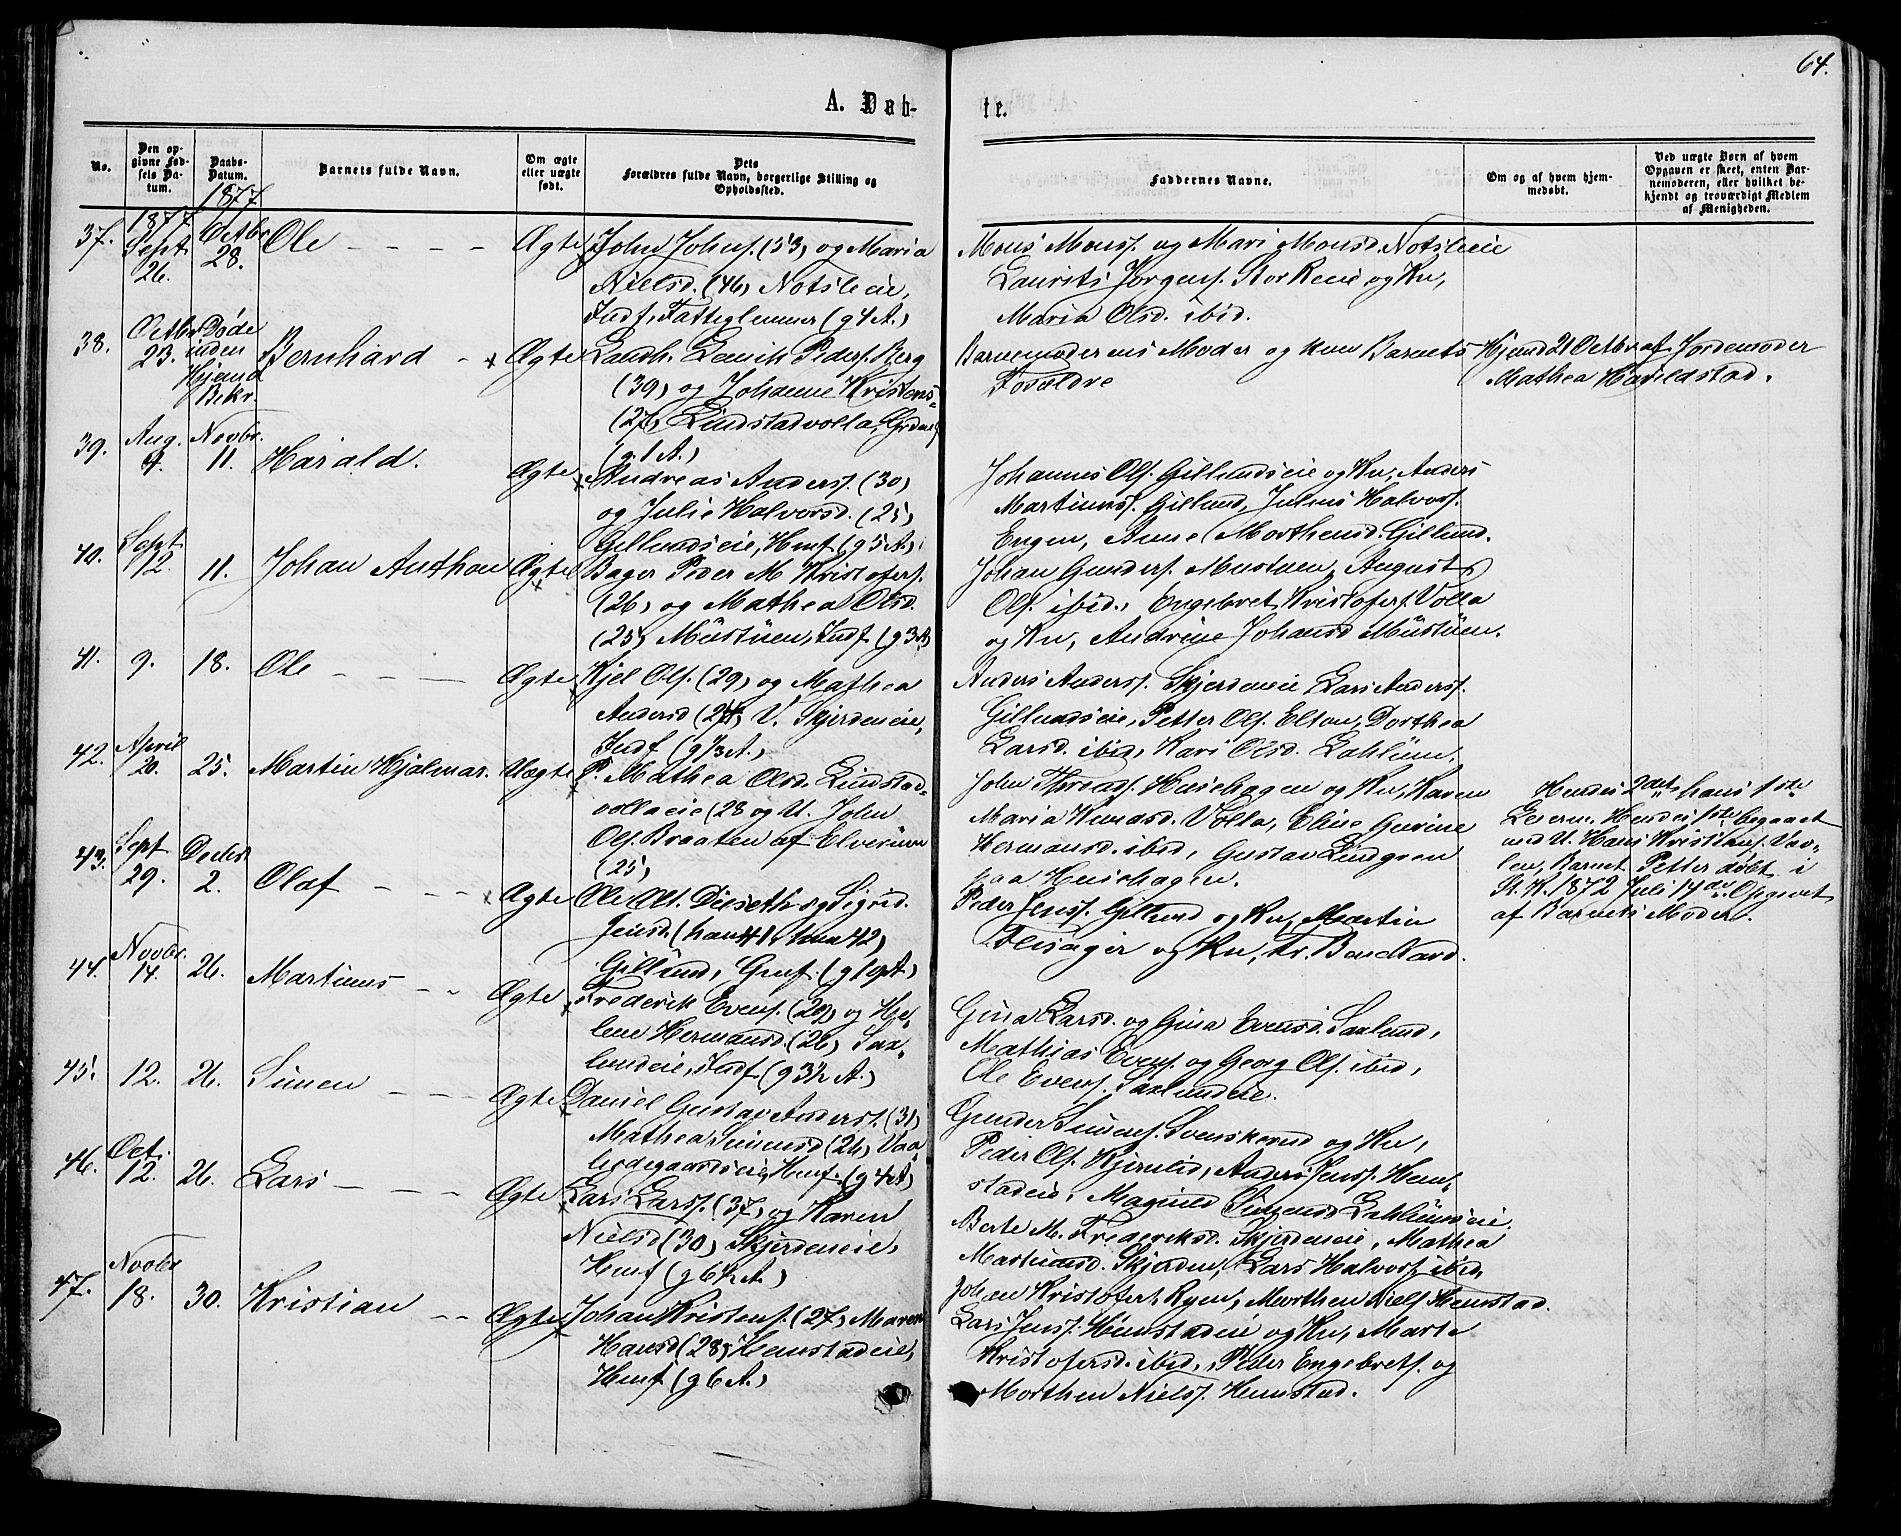 64.
A. Døb-
te.
No.
Den op-
givne Fød-
sels Da-
tum.
Daabs-
Datum.
Barnets fulde Navn.
Om ægte
eller uægte
født.
Dets
Forældres fulde Navn, borgerlige Stilling og
Opholdssted.
Faddernes Navne.
Om og af hvem hjem-
medøbt.
Ved uægte Børn af hvem
Opgaven er skeet, enten Bar-
nemoderen, eller hvilket be-
kjendt og troværdigt Medlem
af Menigheden.
37.
1877
Sept
26.
1877
Octbr
28.
Ole
Ægte
John Johns. (53) og Maria
Nielsd. (46) Notsleie,
Indf. Fattiglemmer (g 4 A.)
Mons Monss. og Mari Monsd. Notsleie
Laurits Jörgens. Storkeie og Ku,
Maria Olsd. ibid.
38.
Octbr
23.
Døde
inden
Hjemd
Bekr.
Bernhard
Ægte
Landh. Lauik Peders. Berg
(39) og Johanne Kristens-
(27) Lindstadvolla, Grdm.
(g. 1 A.)
Barnemoderens Moder og kun Barnets
Foræld­re
Hjemd 21 Octbr af Jordemoder
Mathea Harildstad.
39.
Aug.
9.
Novbr.
11.
Harald.
Ægte
Andreas Anders. (30)
og Julie Halvorsd. (25)
Gillundseie, Husf. (g 5 A.)
Johannes Ols. Gillundseie og Ku, Anders
Martinuss. Gillund, Julius Halvors.
Engen, Anne Morthensd. Gillund.
40.
Sept.
12.
11.
Johan Anthon
Ægte
Bager Peder M. Kristofers.
(26) og Mathea Olsd.
(25) Müstüen, Indf. (g. 3 A)
Johan Gunders. Mustuen, August
Ols. ibid., Engebret Kristofers. Volla
og Ku, Andrine Johansd Müstüen.
41.
9.
18.
Ole
Ægte
Kjel Ols. (29) og Mathea
Andersd (24) V. Skjerdeneie,
Indf (g 1/3 A.)
Anders Anderss. Skjerdeneie Lars Anderss.
Gillundseie, Petter Ols. Elton, Dorthea
Larsd. ibid, Kari Olsd. Lahlüm.
42.
April
20.
25.
Martin Hjalmar.
Uægte
P. Mathea Olsd. Lindstad-
vollaeie (28 og U. John
Ols. Braaten af Elverüm
(25)
John Throndss. Husehagen og Ku, Karen
Maria Knudsd. Volla, Eline Gurine
Hermansd. ibid, Gustav Lindgren
paa Husehagen.
Hendes 2det, hans 1ste
Leierm. Hendes 1ste begaaet
med U. Hans Kristians. Vær-
len, Barnet Petter døbt i
St. K. 1872 Juli 14de. Opgivet
af Barnets Moder.
43.
Sept
29.
Decbr
2.
Olaf
Ægte
Ole Ols. Dieseth og Sigrid
Jensd. (han 41, hun 42)
Gillünd, Grmf. (g 19 A)
Peder Jenss. Gillund og Ku, Martin
Flisager og Ku, Fr. Bondlard.
44.
Novbr.
14.
26.
Martinus
Ægte
Frederik Evens. (29) og He-
lene Hermansd. (26) Sax-
lundeie, Indf (g 3½ A.)
Gina Larsd. og Gina Evensd. Saxlund,
Mathias Evens. og Georg Ols. ibid,
Ole Evens. Saxlundeie.
45.
12.
26.
Simen
Ægte
Daniel Gustav Anders. (31)
Mathea Simensd (26) Vaa-
lerdegaardseie, Husf. (g 4 A)
Gunder Simens. Svenskerud og Ku,
Peder Ols. Kjernlid, Anders Jenss. Hem-
stadeie, Magnild Simensd Lahlümseie.
46.
Oct.
12.
26.
Lars
Ægte
Lars Larss. (37) og Karen
Nielsd (30) Skjerdeneie,
Husf (g 6½ A.)
Berte M. Frederiksd. Skjerdeneie, Mathea
Martinsd. Skjerden, Lars Halvors. ibid.
47.
Novbr
18.
30.
Kristian
Ægte
Johan Kristens. (27) Maren
Hansd (28) Hemstadeie,
Husf (g 6 A.)
Johan Kristofers. Ryen, Morthen Niels Hemstad.
Lars Jenss. Hemstadeie og Ku, Marte
Kristofersd. ibid., Peder Engebrets. og
Morthen Nielss. Hemstad.